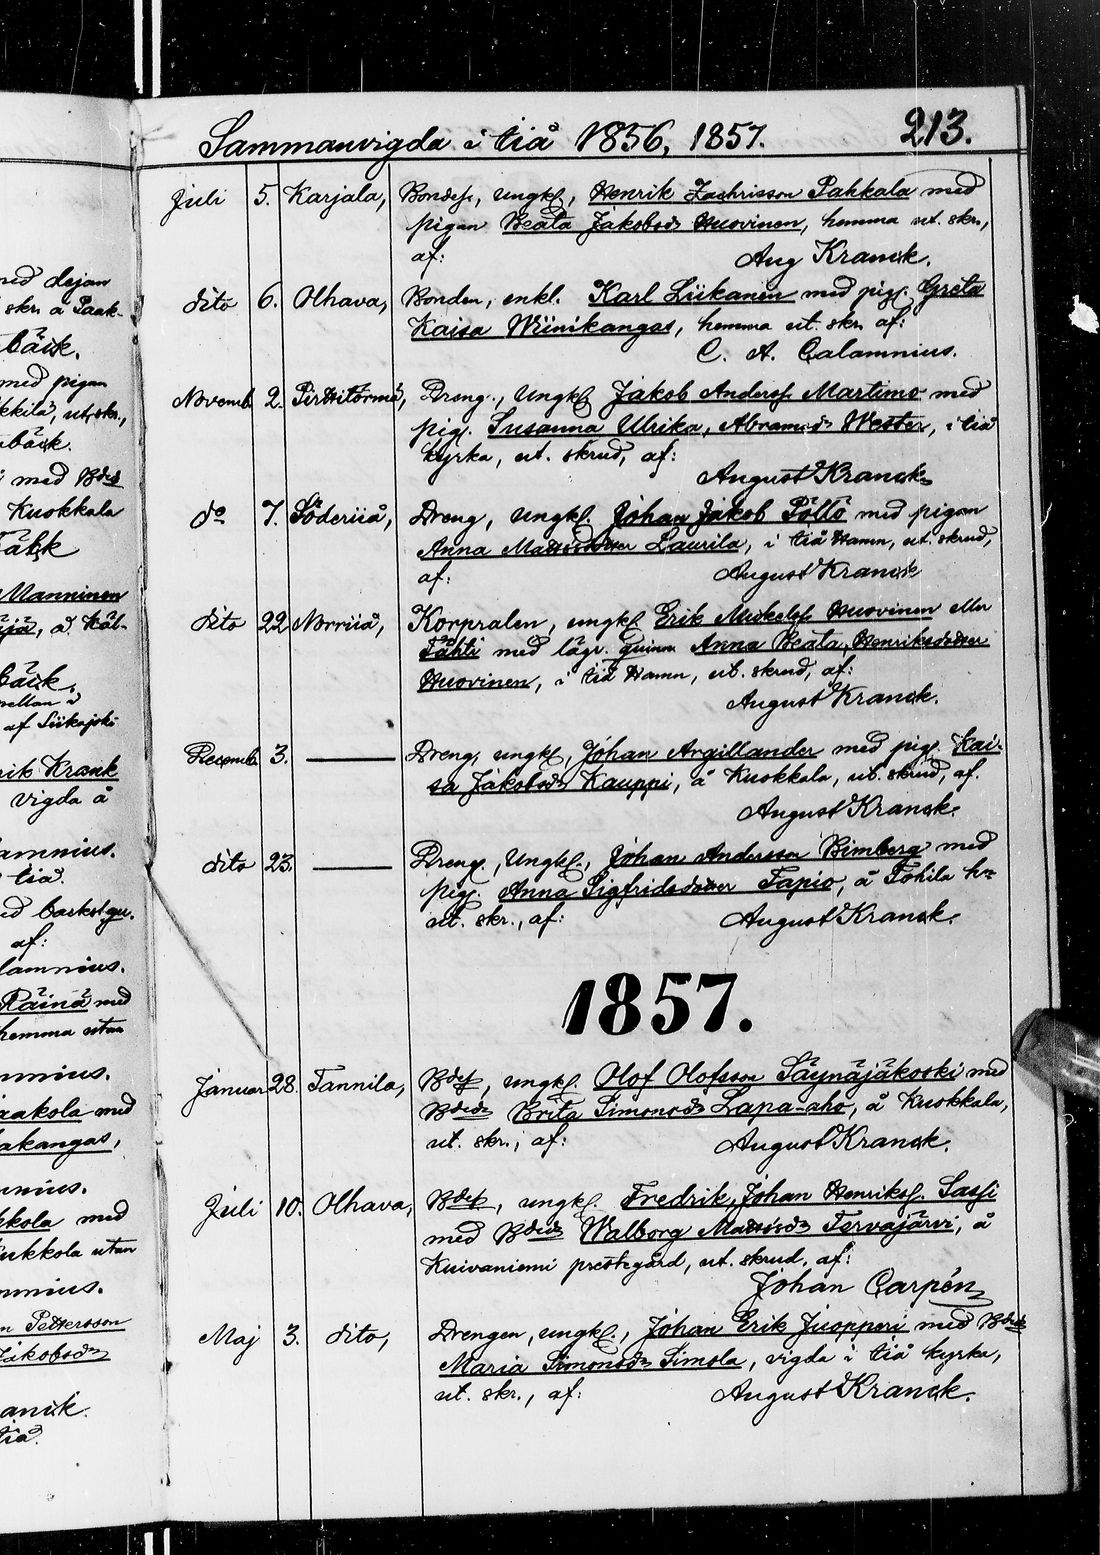 Sammanvigda i Iiå 1856, 1857. 213.
Juli 5. Karjala, Bondes., ungkl, Henrik Zachrisson Pahkala med
pigan Beata Jakobsdr Huovinen, hemma ut. skr.,
af: Aug Kranck.
dito 6. Olhava, Bonden, enkl. Karl Liikanen med pig. Greta
Kaisa Wiinikangas, hemma ut. skr. af:
C. A. Calamnius.
Novemb. 2. Pirttitörmä, Dreng., Ungkl Jakob Anders. Martimo med
pig. Susanna Ulrika, Abramsdr Wester, i Iiå
kyrka, ut. skrud, af:
August Kranck
do 7. Söderiiå, Dreng, ungkl. Johan Jakob Pöllö med pigan
Anna Mattsdotter Laurila, i Iiå Hamn, ut. skrud,
af: August Kranck
dito 22. Norriiå, Korpralen, ungkl Erik Mickels. Huovinen eller
Tähti med lägr. quinn Anna Beata, Henriksdotter
Huovinen, i Iiå Hamn, ut. skrud, af:
August Kranck.
Decemb. 3. Dreng, ungkl, Johan Argillander med pig. Kai-
sa Jakobsdr Kauppi, å Kuokkala, ut. skrud, af.
August Kranck.
dito 23. Dreng., Ungkl., Johan Andersson Bimberg med
pig. Anna Sigfridsdotter Tapio, å Tohila hn
ut. skr., af: August Kranck.
1857.
Januar 28. Tannila, Bdes., ungkl. Olof Olofsson Säynäjäkoski med
Bdedr Brita Simonsdr Lapa-aho, å Kuokkala,
ut. skr., af: August Kranck.
Juli 10. Olhava, Bdes., ungkl. Fredrik, Johan Henriks. Sassi
med Bdedr Walborg Mattsdr Tervajärvi, å
Kuivaniemi prestegård, ut. skrud, af:
Johan Carpén
Maj 3. dito, Drengen, ungkl., Johan Erik Juopperi med Bdedr
Maria Simonsdr Simola, vigda i Iiå kyrka,
ut. skr., af: August Kranck.